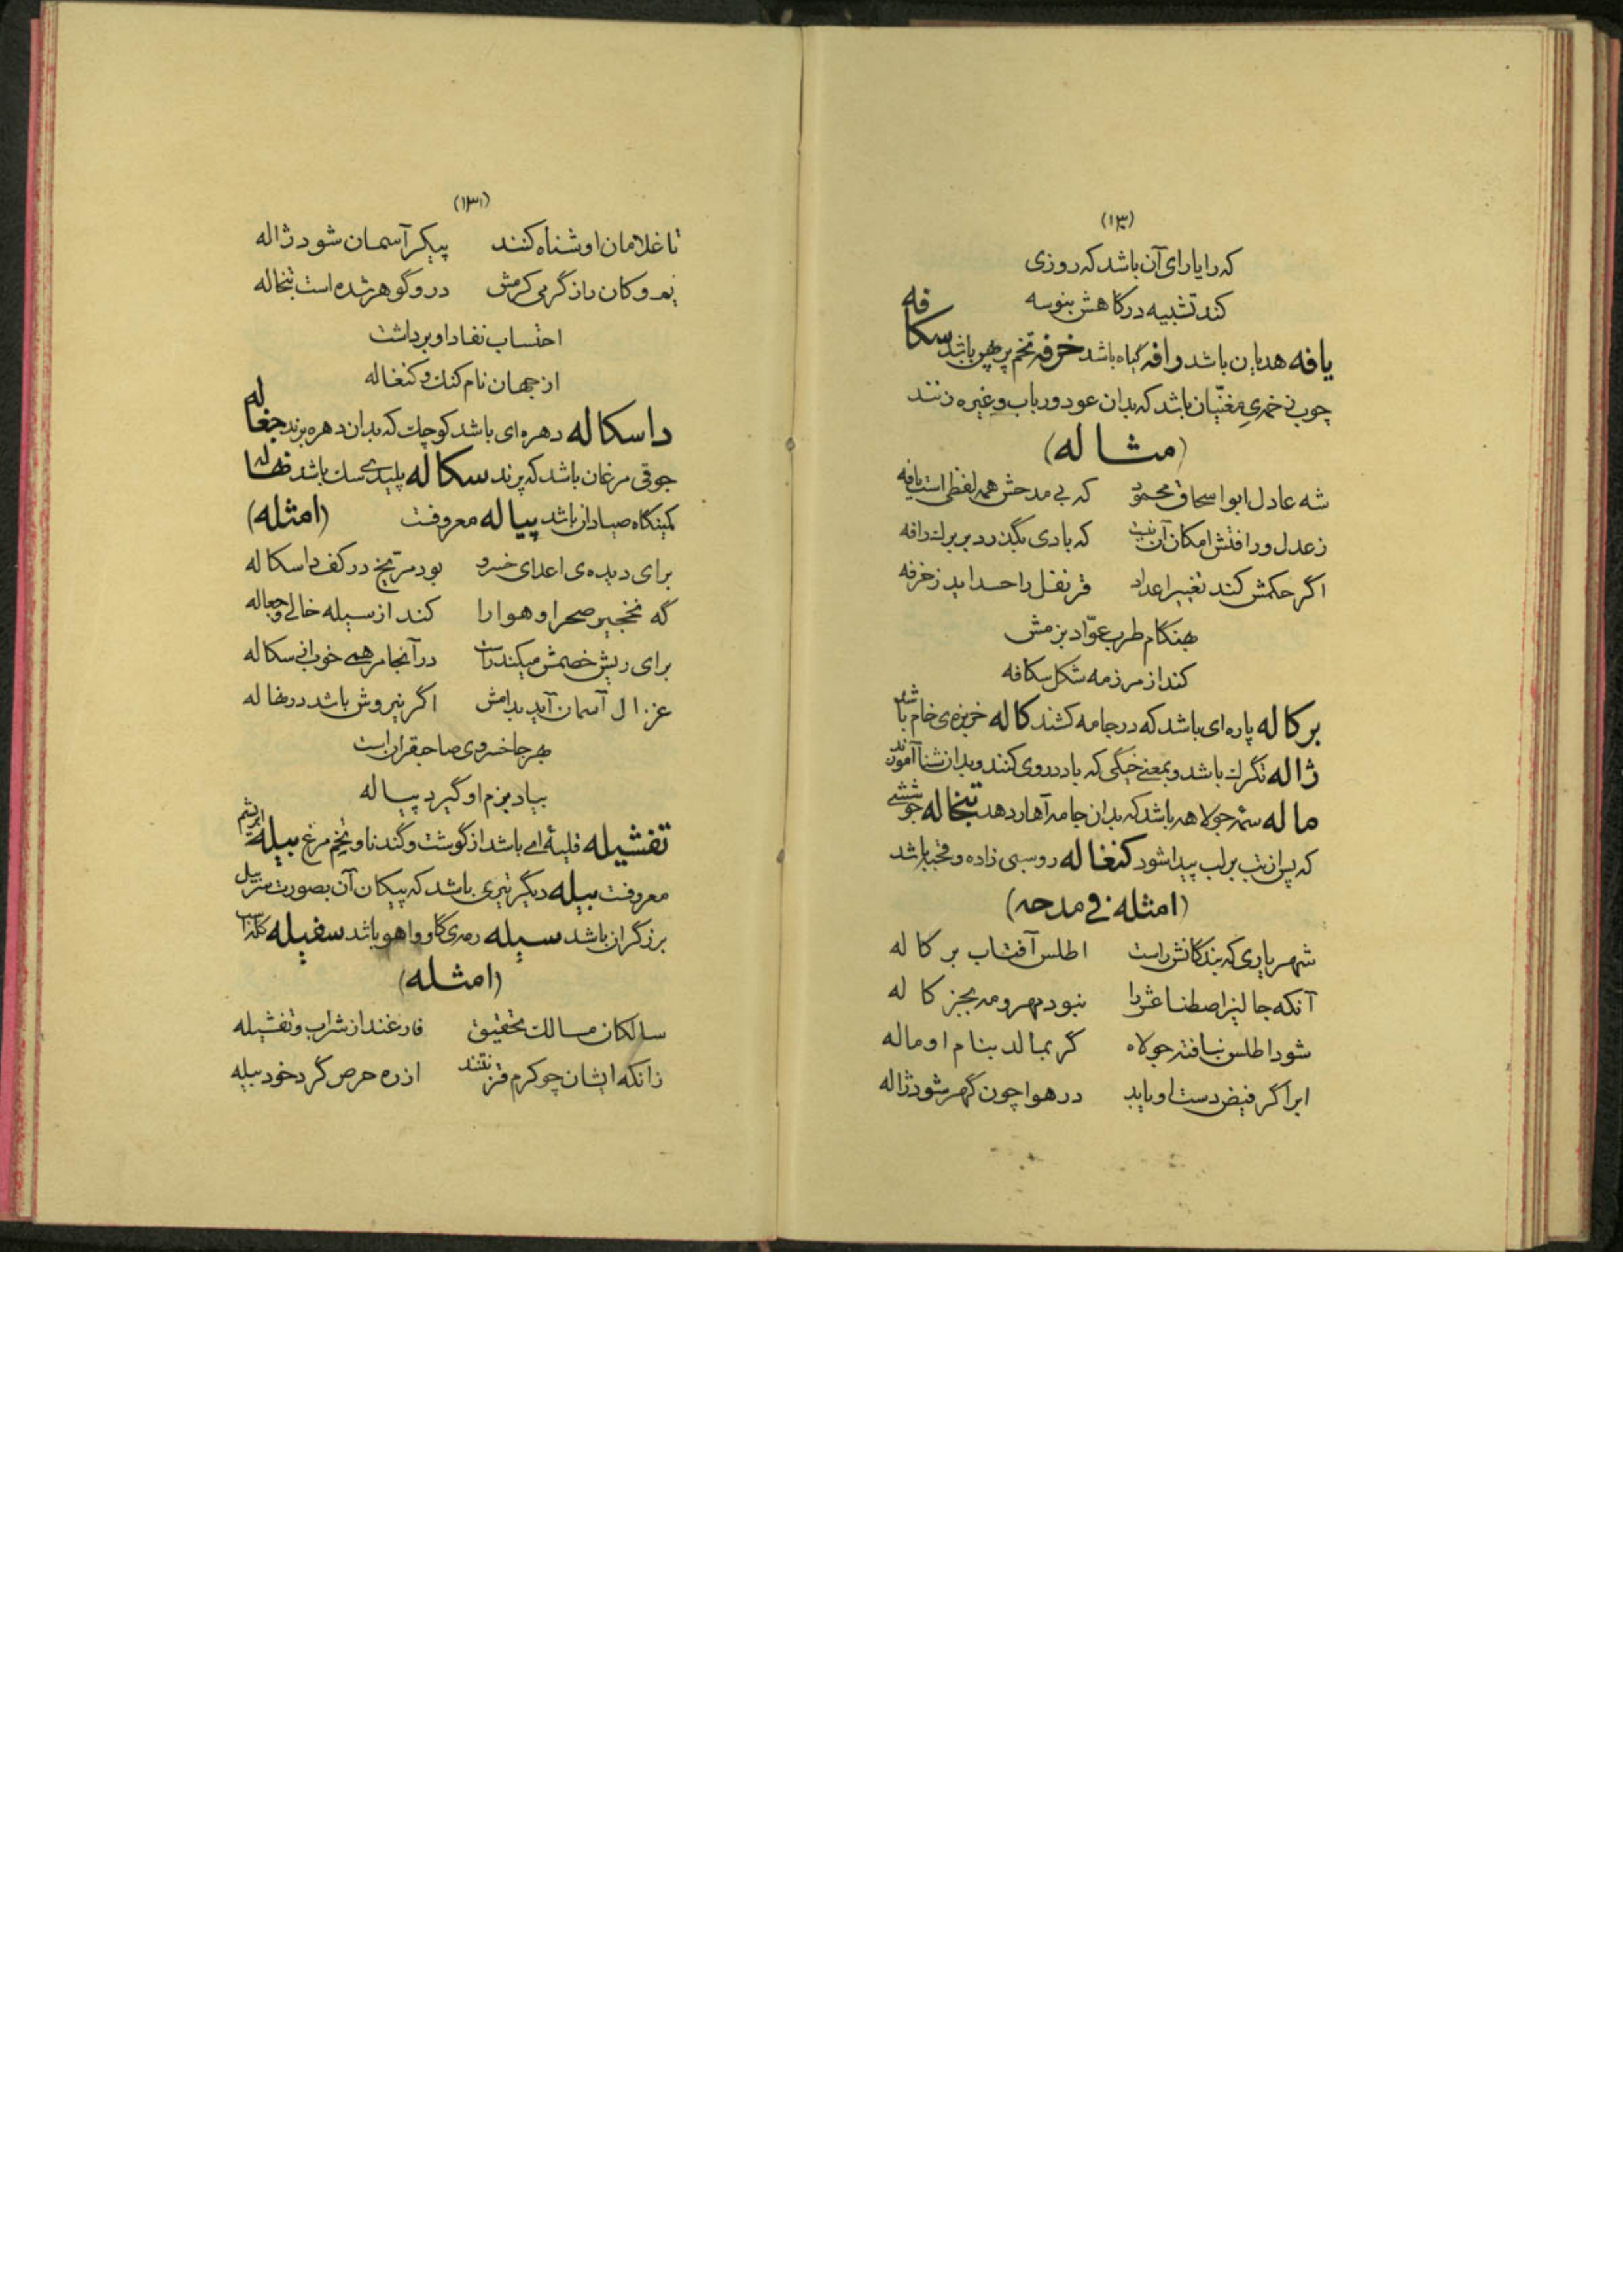 (۱۳۰)
که را یارای آن باشد که روزی
کند تشبیه درگاهش بنوسه
یافه هدیان باشد وافه گیاه باشد خرفه تخم پرپهن باشد سکافه
چوب زخمه‌ی مغنّیان باشد که بدان عود و رباب و غیره زنند
(مثاله)
شه عادل ابواسحاق محمود که بی مدحش همه لفظی است یافه
ز عدل و رافتش امکان آن نیست که بادی بگذرد بر برک رافه
اگر حکمش کند تغییر اعداد قرنفل را حسد اید ز خرفه
بهنگام طرب عوّاد بزمش
کند از مرزمه شکل سکافه
برکاله پاره‌ای باشد که در جامه کشند کاله خربزه‌ی خام باشد
ژاله تگرک باشد و بمعنی خیکی که باد در وی کنند و بدان شنا آموزند
ماله سمه جولاهه باشد که بدان جامه آهار دهد تبخاله جوششی
که پس از تب بر لب پیدا شود کنغاله روسبی زاده و قحبه باشد
(امثله فی مدحه)
شهریاری که بندگانش راست اطلس آفتاب برکاله
آنکه جالیز اصطناعش را نبود مهر و مه بجز کاله
شود اطلس نبافته جولاه گر بمالد بنام او ماله
ابر اگر فیض دست او یابد در هوا چون گهر شود ژاله
(۱۳۱)
تا غلامان او شناه کنند پیکر آسمان شود ژاله
یم و کان را ز گرمی کرمش در و گوهر شده است تبخاله
احتساب نفاد او برداشت
از جهان نام کنک و کنغاله
داسکاله دهره‌ای باشد کوچک که بدان دهره برند جغاله
جوقی مرغان باشد که پرند سکاله پلیدی سک باشد نهاله
کمینگاه صیادان باشد پیاله معروفت (امثله)
برای دیده‌ی اعدای خسرو بود مریخ در کف داسکاله
گه نخجیر صحرا و هوا را کند از سیله خالی و جغاله
برای ریش خصمش میکند راست در آنجا مرهمی خوب از سکاله
غزال آسمان آید بدامش اگر نیروش باشد در نهاله
بهر جا خسروی صاحبقران است
بیاد بزم او گیرد پیاله
تفشیله قلیه‌ای باشد از گوشت و گندنا و تخم مرغ بیله ابریشم
معروفت بیله دیگر تیری باشد که پیکان آن بصورت بیل
برزگران باشد سیله رمه‌ی گاو و اهو باشد سفیله
(امثله)
سالکان مسالک تحقیق فارغند از شراب و تفشیله
زانکه ایشان چو کرم قز نتنند از ره حرص گرد خود بیله